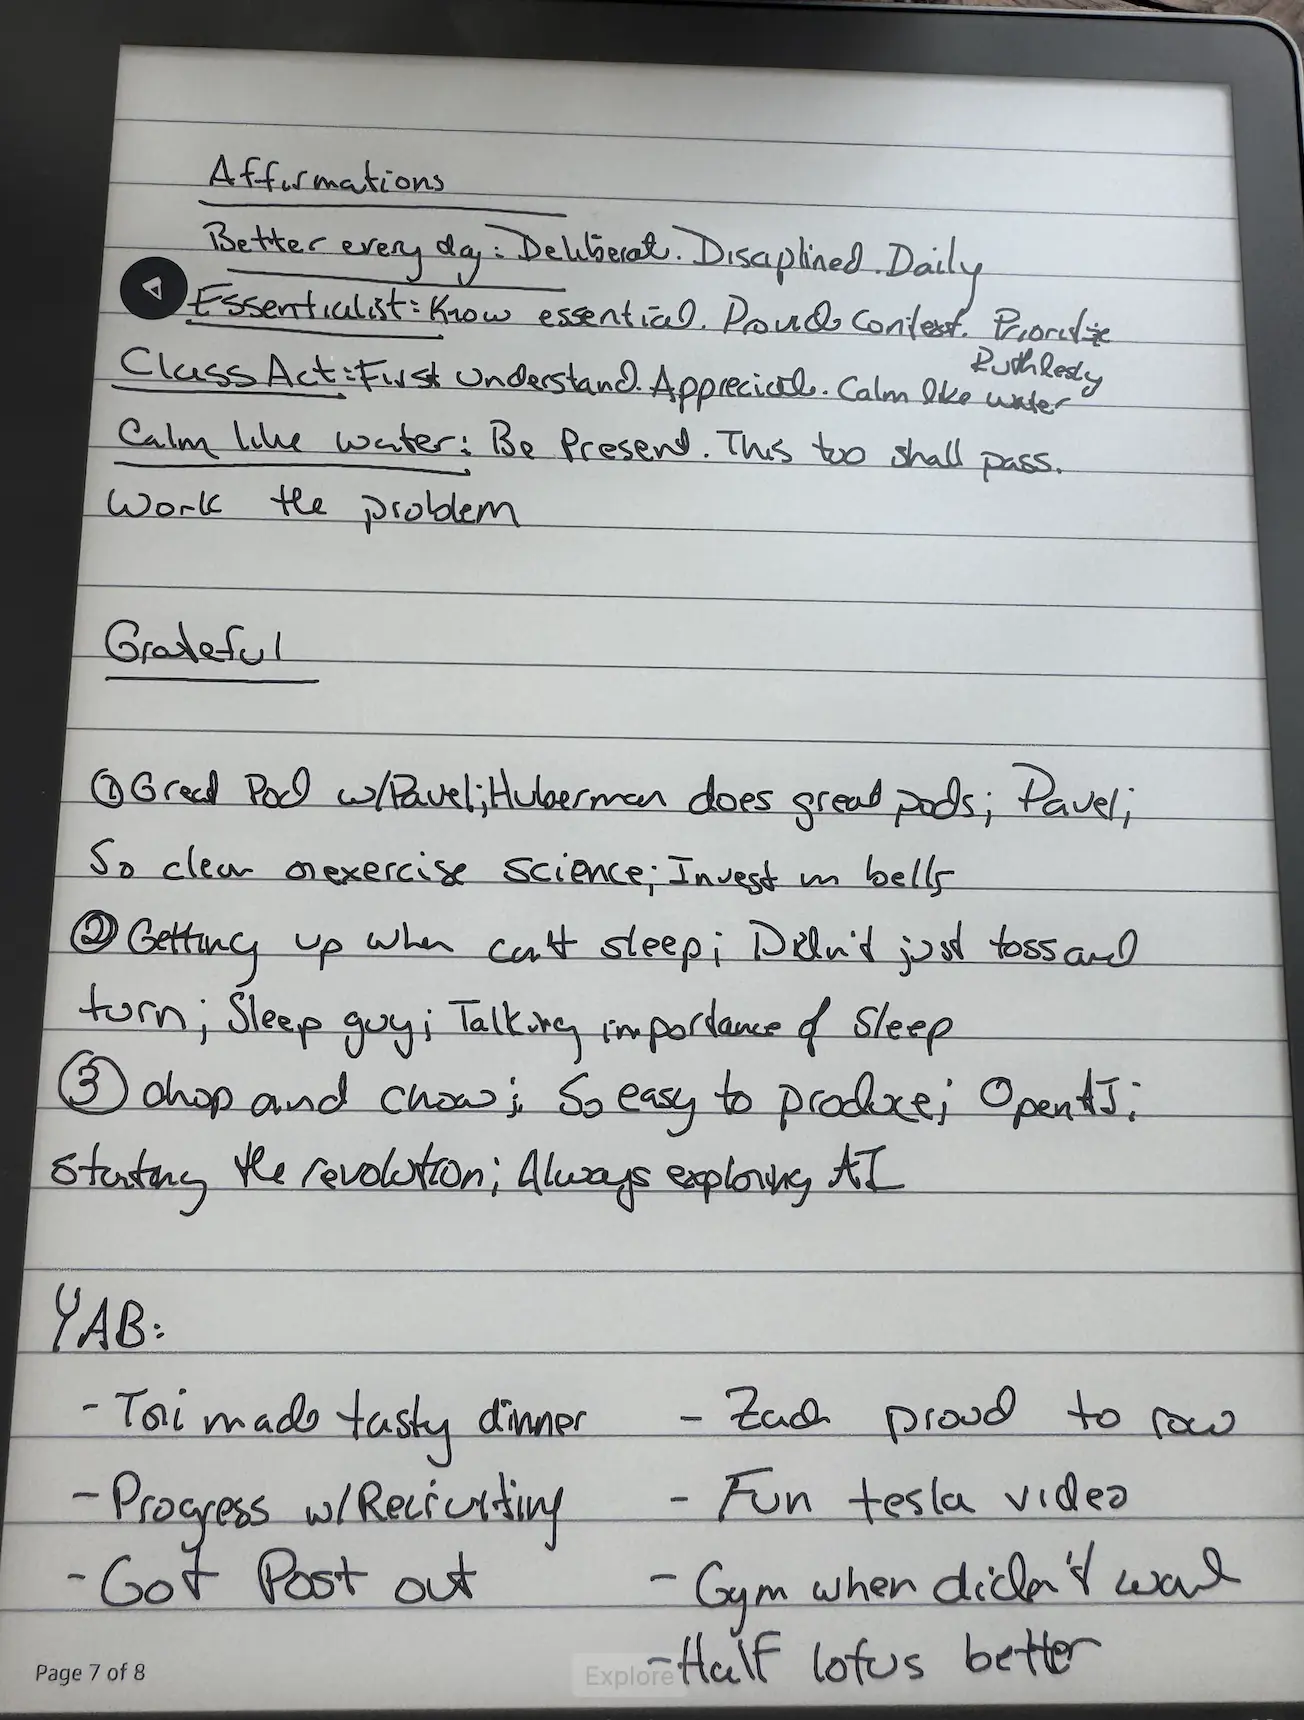 Affirmations
Better every day: Deliberate. Disciplined. Daily
Essentialist: Know essential. Provide Context. Prioritize
Ruthlessly
Class Act: First Understand. Appreciate. Calm like water
Calm like water: Be Present. This too shall pass.
Work the problem
Grateful
① Great Pod w/Pavel; Huberman does great pods; Pavel;
So clear on exercise science; Invest in bells
② Getting up when can't sleep; Didn't just toss and
turn; Sleep guy; Talking importance of Sleep
③ chop and chow; So easy to produce; OpenAI;
starting the revolution; Always exploring AI
YAB:
- Tori made tasty dinner
- Progress w/Recruiting
- Got Post out
- Zach proud to row
- Fun tesla video
- Gym when didn't want
- Half lotus better
Page 7 of 8
Explore